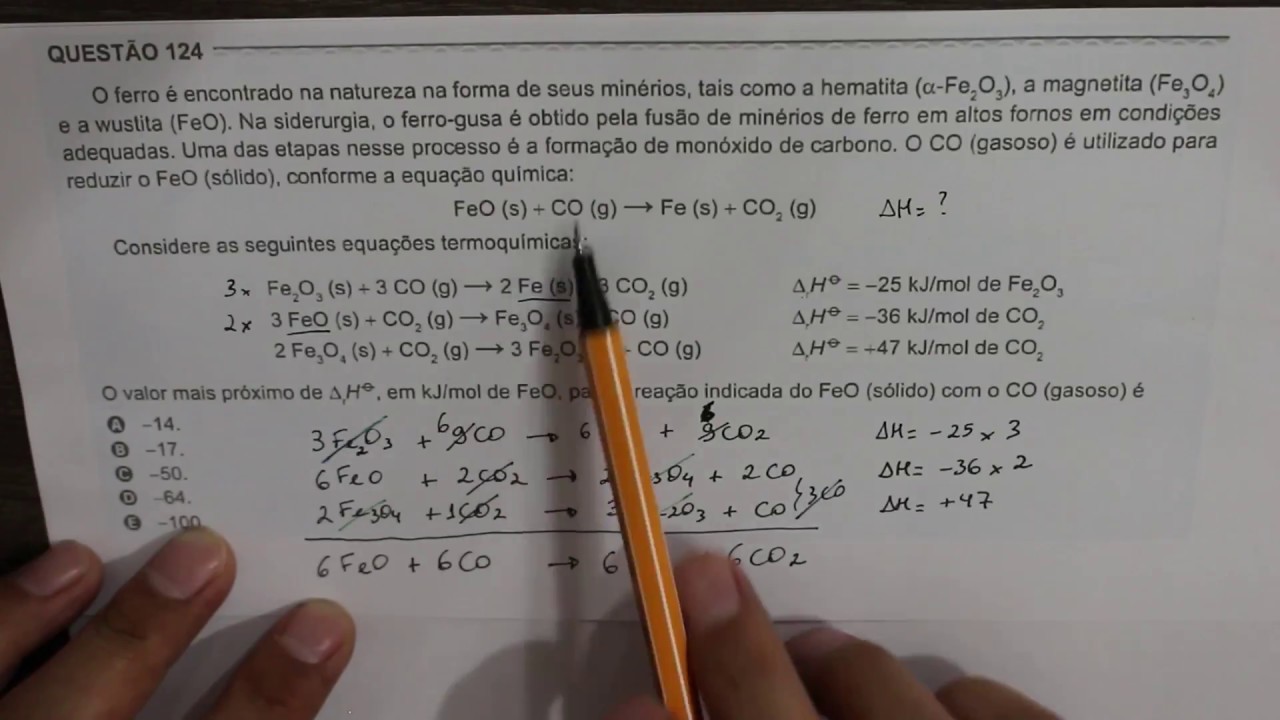 QUESTÃO 124
O ferro é encontrado na natureza na forma de seus minérios, tais como a hematita (α-Fe₂O₃), a magnetita (Fe₃O₄)
e a wustita (FeO). Na siderurgia, o ferro-gusa é obtido pela fusão de minérios de ferro em altos fornos em condições
adequadas. Uma das etapas nesse processo é a formação de monóxido de carbono. O CO (gasoso) é utilizado para
reduzir o FeO (sólido), conforme a equação química:
FeO (s) + CO (g) → Fe (s) + CO₂ (g) ΔH = ?
Considere as seguintes equações termoquímicas:
3x Fe₂O₃ (s) + 3 CO (g) → 2 Fe (s) 3 CO₂ (g) ΔᵣH⊖ = −25 kJ/mol de Fe₂O₃
2x 3 FeO (s) + CO₂ (g) → Fe₃O₄ (s) CO (g) ΔᵣH⊖ = −36 kJ/mol de CO₂
2 Fe₃O₄ (s) + CO₂ (g) → 3 Fe₂O CO (g) ΔᵣH⊖ = +47 kJ/mol de CO₂
O valor mais próximo de ΔᵣH⊖, em kJ/mol de FeO, reação indicada do FeO (sólido) com o CO (gasoso) é
A −14.
B −17.
C −50.
D −64.
E −100.
3Fe₂O₃ + 6 9CO → 6 + 6 9CO₂ ΔH = -25 x 3
6FeO + 2CO₂ → 2 ₃O₄ + 2CO ΔH = -36 x 2
2Fe₃O₄ + 1CO₂ → 3 ₂O₃ + CO } 3CO ΔH = +47
6FeO + 6CO → 6 6CO₂